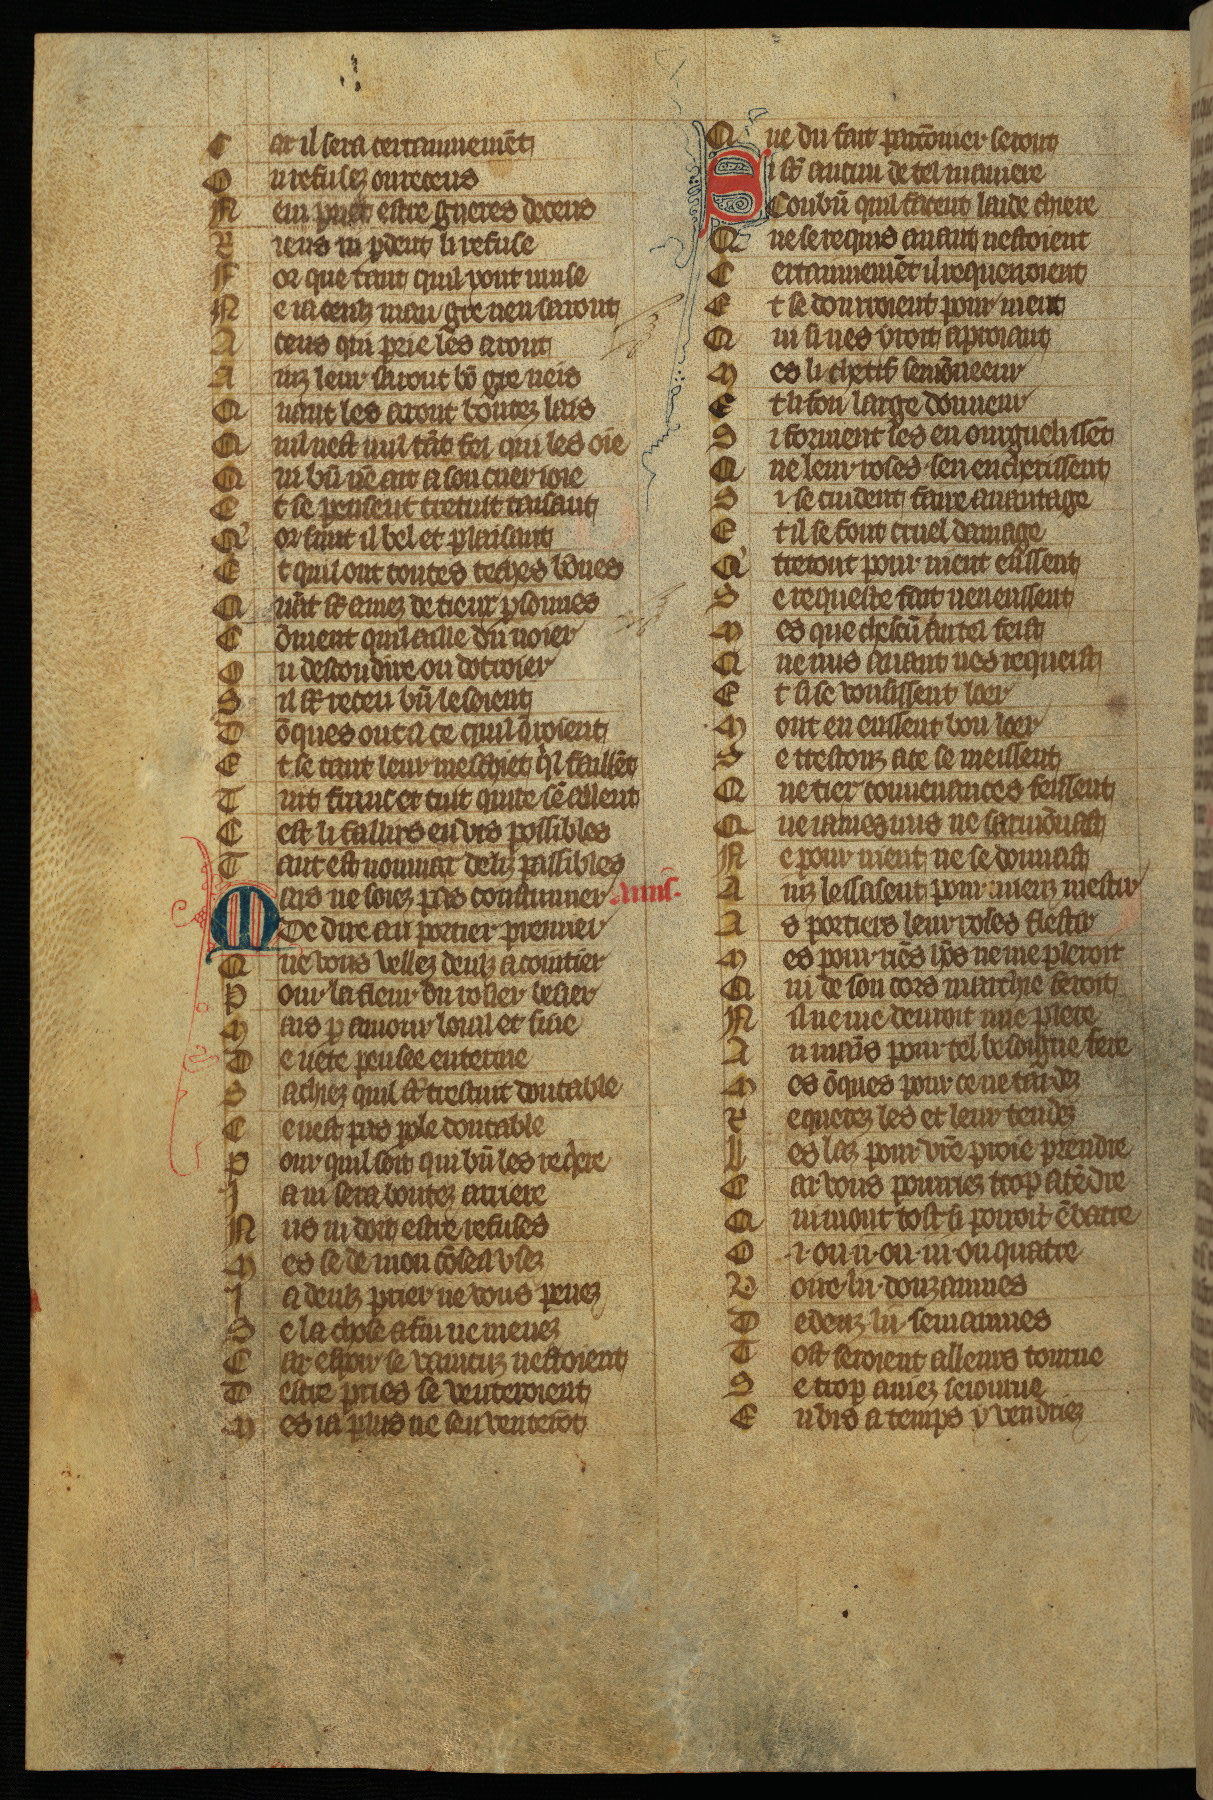 Car il sera certainnemēt
Ou refusez ou receus
Nen puet estre gueres deceus
Riens ni pdent li refuse
For que tant quil vont muse
Ne ia ceulz mau gre nen saront
A ceus qui prie les aront
Ainz leur saront bō gre neis
Quant les aront boutez lais
Quil nest nul tāt fel qui les oie
Qui bn̄ nē ait a son cuer ioie
Et se pensent trestuit taisant
Qor sunt il bel et plaisant
Et quil ont toutes teches bōnes
Quāt st̄ amez de tieux psonnes
Cōment quil aille dou noier
Ou descondire ou dotroier
Sil st̄ receu bn̄ le soient
Dōques ont a ce quil q̄roient
Et se tant leur meschiet q̄l faillēt
Tuit franc et tuit quite sē aillent
Cest li faillirs enuis possibles
Tant est nouuiax deliz passibles
Mais ne soiez pas constumier Amis.
De dire au portier premier
Que vous vellez deulz acointier
Pour la fleur du rosier besier
Mais p amour loial et fine
De nete pensee enterine
Sachiez quil st̄ trestuit doutable
Ce nest pas pole doutable
Pour quil soit qui bn̄ les req̄ere
Ja ni sera boutez arriere
Nus ni doit estre refuses
Mes se de mon cōseil vsez
Ja deulz prier ne vous penez
Se la chose a fin ne menez
Car espoir se vaincuz nestoient
Destre pries se venteroient
Mes ia puis ne sen venterōt
Que du fait parcōnier seront
Si st̄ aucun de tel maniere
Conbn̄ quil facent laide chiere
Que se requis auant nestoient
Certainnemēt il requerroient
Et se donrroient pour nient
Qui si nes vroit aproiant
Mes li chetif semōneeur
Et li fou large donneur
Si forment les enourguelissēt
Que leur roses sen encherissent
Si se cuident faire auantage
Et il se font cruel damage
Q tretout pour nient eussent
Se requeste fait nen eussent
Mes que chescū autel feist
Que nus auant nes requeist
Et si se vousissent loer
Mont en eussent bon loer
Se trestouz a ce se meissent
Que tiex conuenances feissent
Que iames nus ne sarmōnast
Ne pour nient ne se donnast
Ainz lessasent pour mieuz mestir
As portiers leur roses flestir
Mes pour riēs hōs ne me pleroit
Qui de son cors marchie feroit
Nil ne me deuroit mie plere
Au mains pour tel besoigne fere
Mes ōques pour ce ne tardez
Requerez les et leur tendez
Les laz pour vre proie prendre
Car vous pourriez trop atēdre
Qui mont tost si porroit ēbatre
O .i. ou .ii. ou .iii. ou quatre
Voire lii. douzainnes
Dedenz lii. semainnes
Tost seroient alleurs tourne
Se trop auiez seiourne
Enuis a temps y vendriez